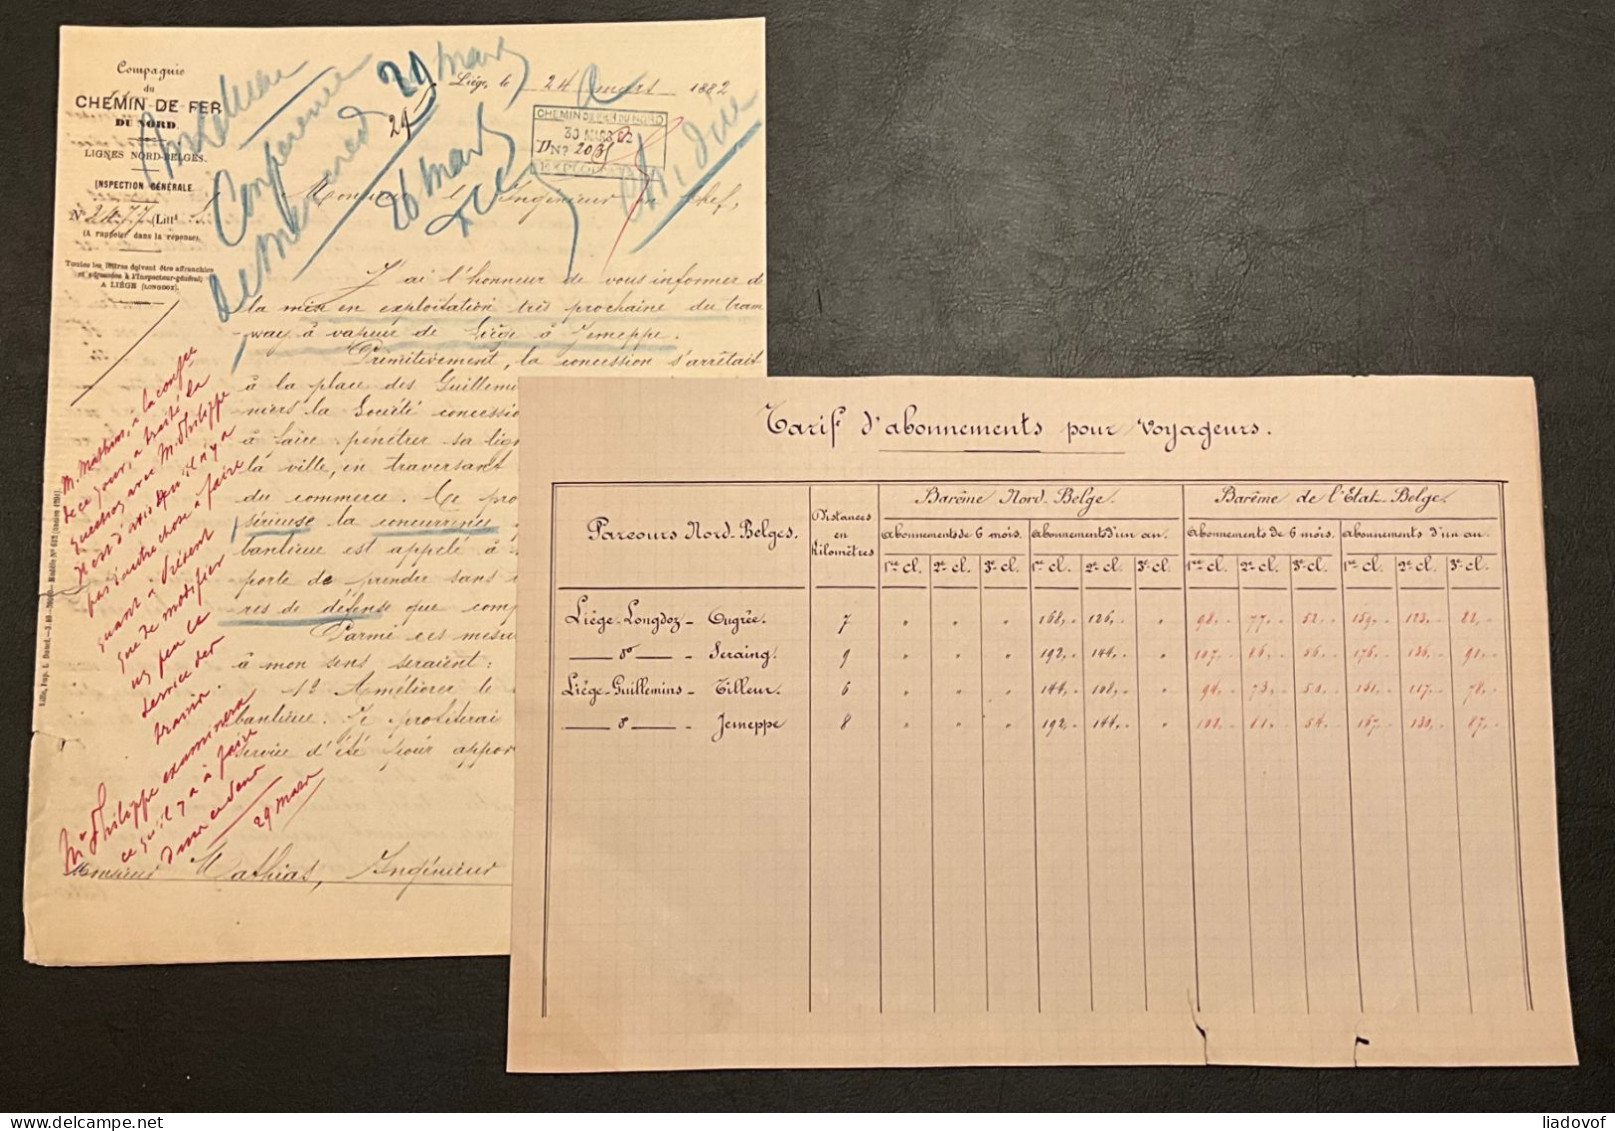 Compagnie
du
CHEMIN DE FER
DU NORD.
LIGNES NORD-BELGES.
INSPECTION GÉNÉRALE
N° 2477 (Litt
(A rappeler dans la réponse).
Toutes les lettres doivent être affranchies
et adressées à l'Inspecteur-général,
A LIÉGE (LONGDOZ).
Liège, le 24 mars 1882
CHEMIN DE FER DU NORD
30 MARS 82
N°
Conférence
demercredi
29
26 mars
Monsieur l'Ingénieur en chef,
J'ai l'honneur de vous informer d
la mise en exploitation très prochaine du tram
-way à vapeur de Liège à Jemeppe.
Primitivement, la concession s'arrêtait
à la place des Guillemi
niers la Société concession
à faire pénétrer sa lign
la ville, en traversant
du commerce. Ce pro
sérieuse la concurrence
bantieue est appelé à
porte de prendre sans
res de défense que comp
Parmi ces mesur
à mon sens seraient:
1° Améliorer le
bantieue. Je profiterai
service d'été pour appor
Monsieur Mathias, Ingénieur
M. Mathias, à la confce
de ce jour, a traité la
question avec M. Philippe
Il est d'avis qu'il n'y a
pas autre chose à faire
quant à présent
que de modifier
un peu le
service des
trains.
Mr Philippe examinera
ce qu'il y a à faire
dans ce sens
29 mars
Tarif d'abonnements pour Voyageurs.
Parcours Nord-Belges. Distances en Kilomètres Barême Nord-Belge. Barême de l'Etat-Belge.
Abonnements de 6 mois. Abonnements d'un an. Abonnements de 6 mois. Abonnements d'un an.
1re cl. 2e cl. 3e cl. 1re cl. 2e cl. 3e cl. 1re cl. 2e cl. 3e cl. 1re cl. 2e cl. 3e cl.
Liège-Longdoz - Ougrée. 7 " " " 168,- 126,- " 98,- 77,- 52,- 159,- 123,- 82,-
— do — - Seraing. 9 " " " 192,- 144,- " 107,- 86,- 56,- 176,- 136,- 91,-
Liège-Guillemins - Tilleur. 6 " " " 144,- 108,- " 94,- 73,- 50,- 151,- 117,- 78,-
— do — - Jemeppe 8 " " " 192,- 144,- " 102,- 81,- 54,- 167,- 130,- 87,-
liadovof